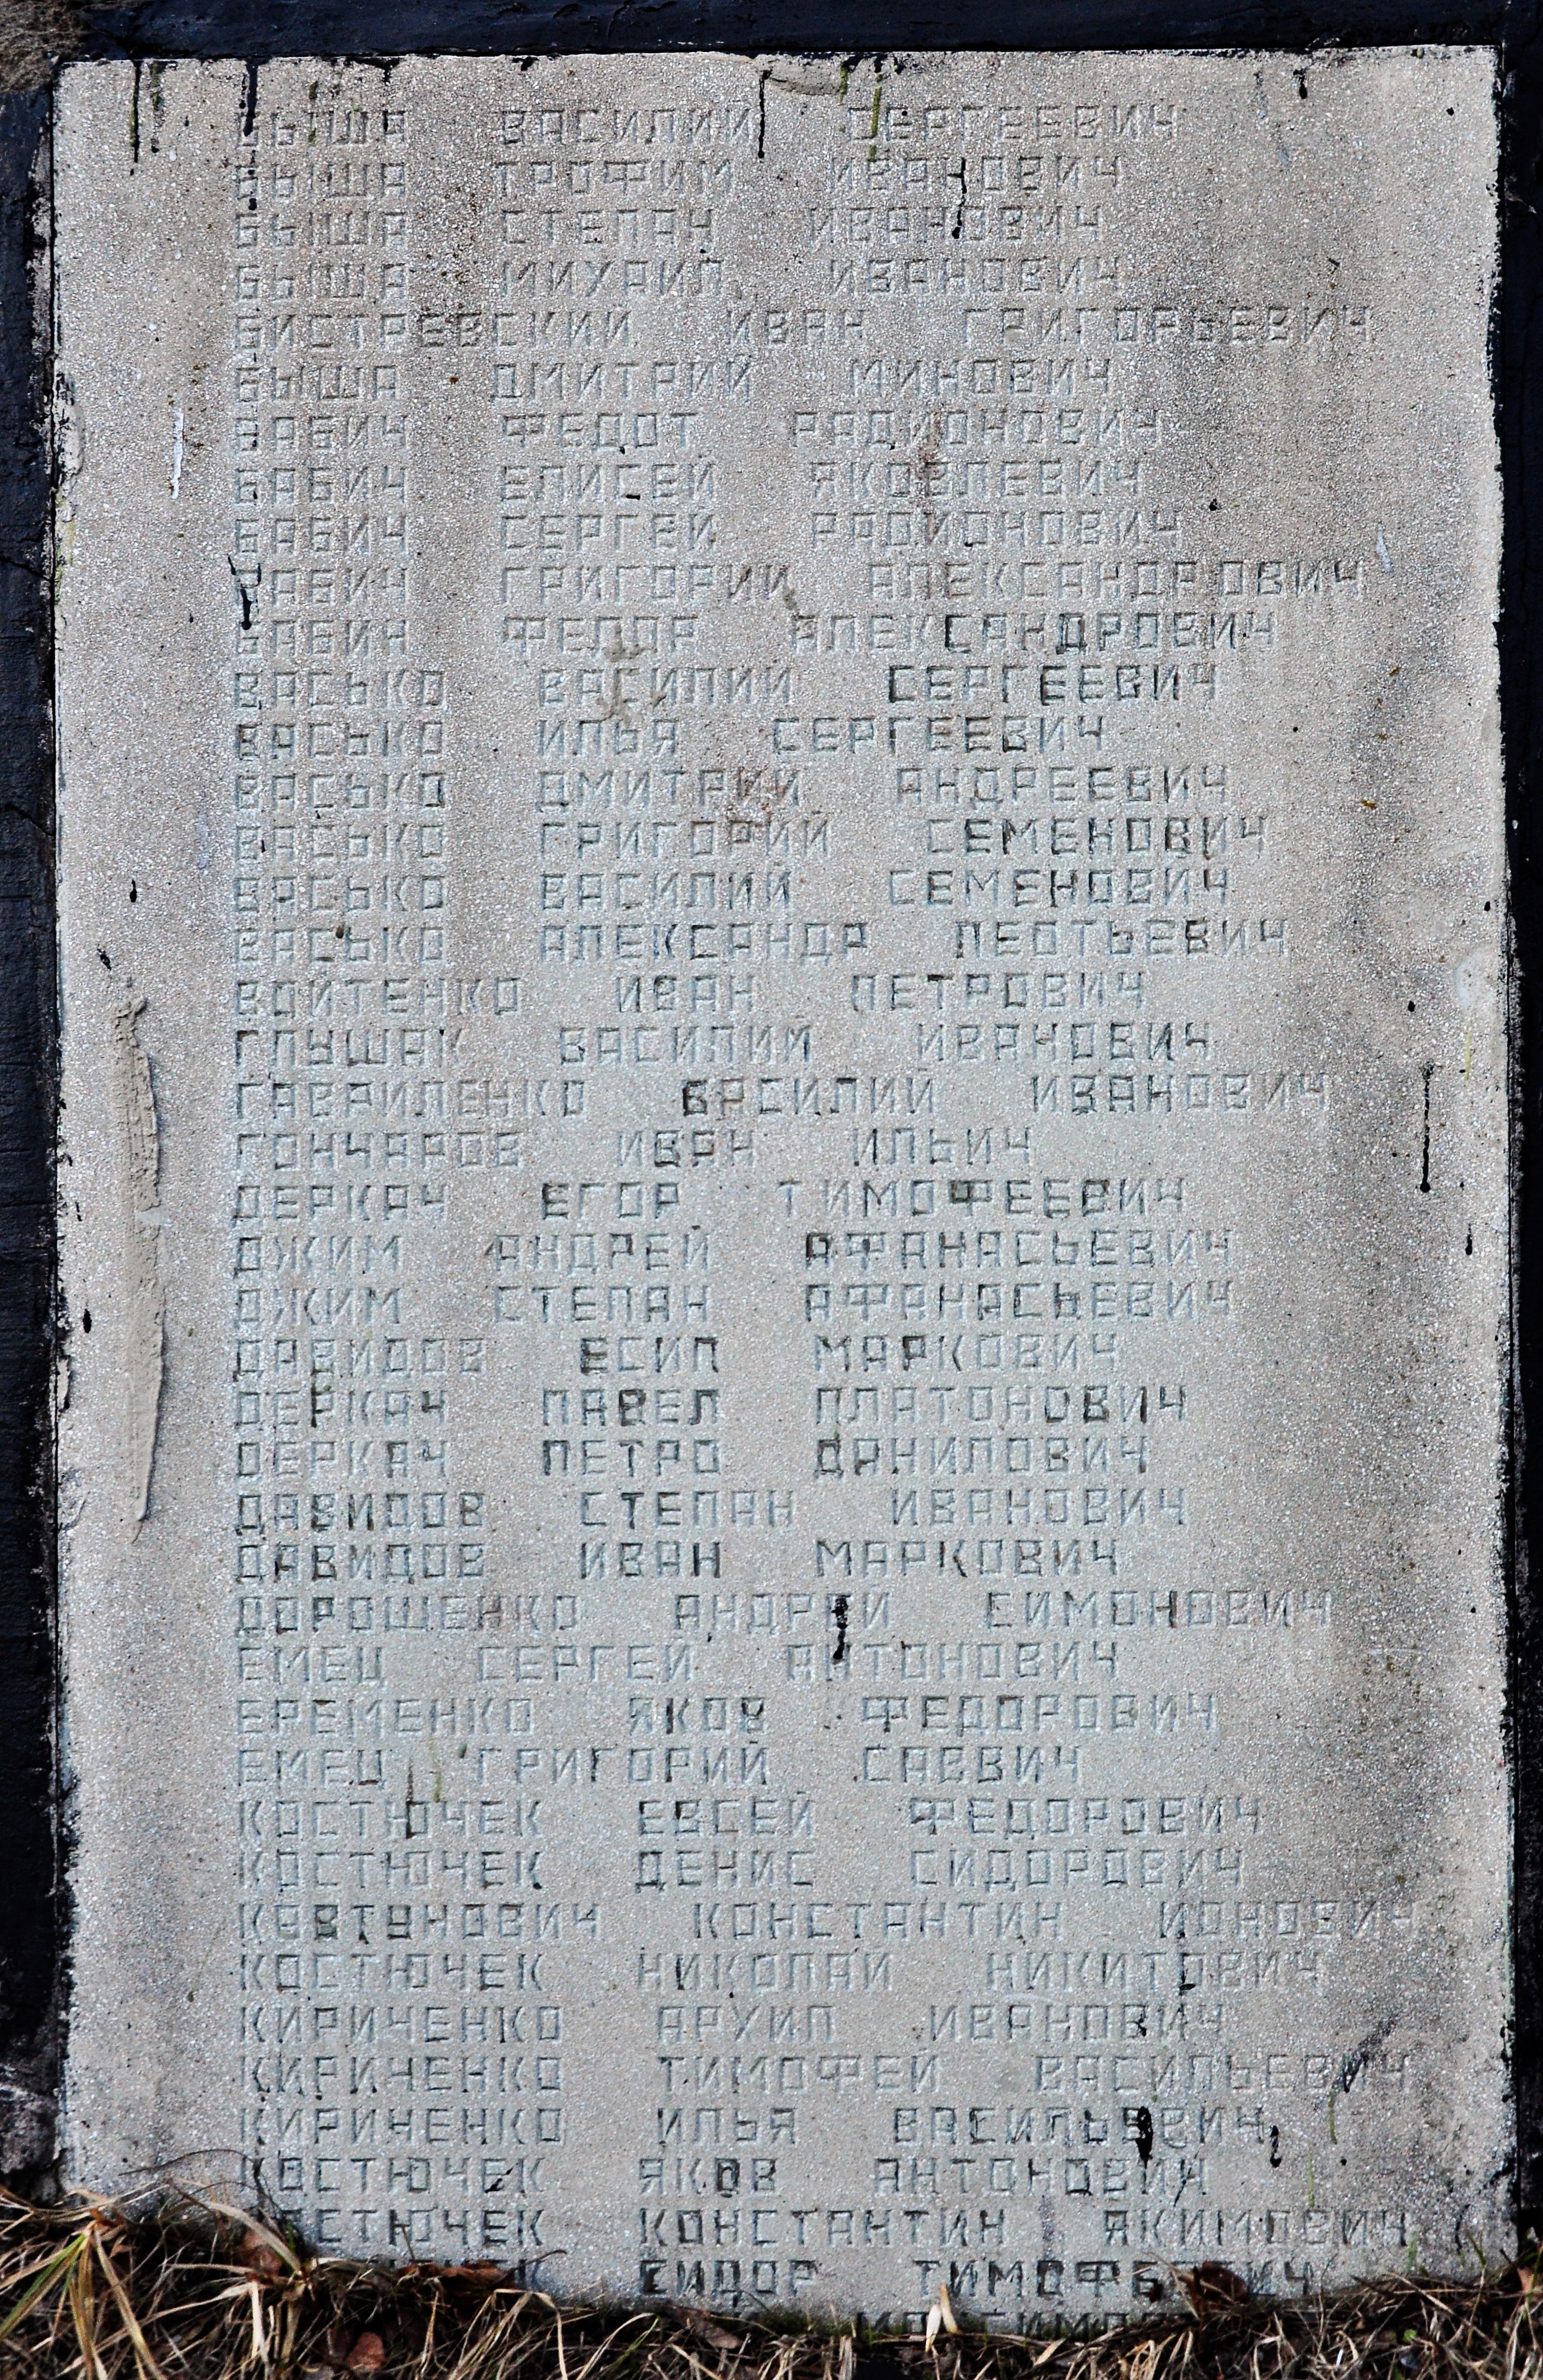 БЫША ВАСИЛИЙ СЕРГЕЕВИЧ
БЫША ТРОФИМ ИВАНОВИЧ
БЫША СТЕПАН ИВАНОВИЧ
БЫША МИХАИЛ ИВАНОВИЧ
БИСТРЕВСКИЙ ИВАН ГРИГОРЬЕВИЧ
БЫША ДМИТРИЙ МИНОВИЧ
БАБИЧ ФЕДОТ РАДИОНОВИЧ
БАБИЧ ЕЛИСЕЙ ЯКОВЛЕВИЧ
БАБИЧ СЕРГЕЙ РАДИОНОВИЧ
БАБИЧ ГРИГОРИЙ АЛЕКСАНДРОВИЧ
БАБИЧ ФЕДОР АЛЕКСАНДРОВИЧ
ВАСЬКО ВАСИЛИЙ СЕРГЕЕВИЧ
ВАСЬКО ИЛЬЯ СЕРГЕЕВИЧ
ВАСЬКО ДМИТРИЙ АНДРЕЕВИЧ
ВАСЬКО ГРИГОРИЙ СЕМЕНОВИЧ
ВАСЬКО ВАСИЛИЙ СЕМЕНОВИЧ
ВАСЬКО АЛЕКСАНДР ЛЕОТЬЕВИЧ
ВОЙТЕНКО ИВАН ПЕТРОВИЧ
ГЛУШАК ВАСИЛИЙ ИВАНОВИЧ
ГАВРИЛЕНКО ВАСИЛИЙ ИВАНОВИЧ
ГОНЧАРОВ ИВАН ИЛЬИЧ
ДЕРКАЧ ЕГОР ТИМОФЕЕВИЧ
ДЖИМ АНДРЕЙ АФАНАСЬЕВИЧ
ДЖИМ СТЕПАН АФАНАСЬЕВИЧ
ДАВИДОВ ЕСИП МАРКОВИЧ
ДЕРКАЧ ПАВЕЛ ПЛАТОНОВИЧ
ДЕРКАЧ ПЕТРО ДАНИЛОВИЧ
ДАВИДОВ СТЕПАН ИВАНОВИЧ
ДАВИДОВ ИВАН МАРКОВИЧ
ДОРОШЕНКО АНДРЕЙ СИМОНОВИЧ
ЕМЕЦ СЕРГЕЙ АНТОНОВИЧ
ЕРЕМЕНКО ЯКОВ ФЕДОРОВИЧ
ЕМЕЦ ГРИГОРИЙ САВВИЧ
КОСТЮЧЕК ЕВСЕЙ ФЕДОРОВИЧ
КОСТЮЧЕК ДЕНИС СИДОРОВИЧ
КОВТУНОВИЧ КОНСТАНТИН ИОНОВИЧ
КОСТЮЧЕК НИКОЛАЙ НИКИТОВИЧ
КИРИЧЕНКО АРХИП ИВАНОВИЧ
КИРИЧЕНКО ТИМОФЕЙ ВАСИЛЬЕВИЧ
КИРИЧЕНКО ИЛЬЯ ВАСИЛЬЕВИЧ
КОСТЮЧЕК ЯКОВ АНТОНОВИЧ
КОСТЮЧЕК КОНСТАНТИН ЯКИМОВИЧ
СИДОР ТИМОФЕЕВИЧ